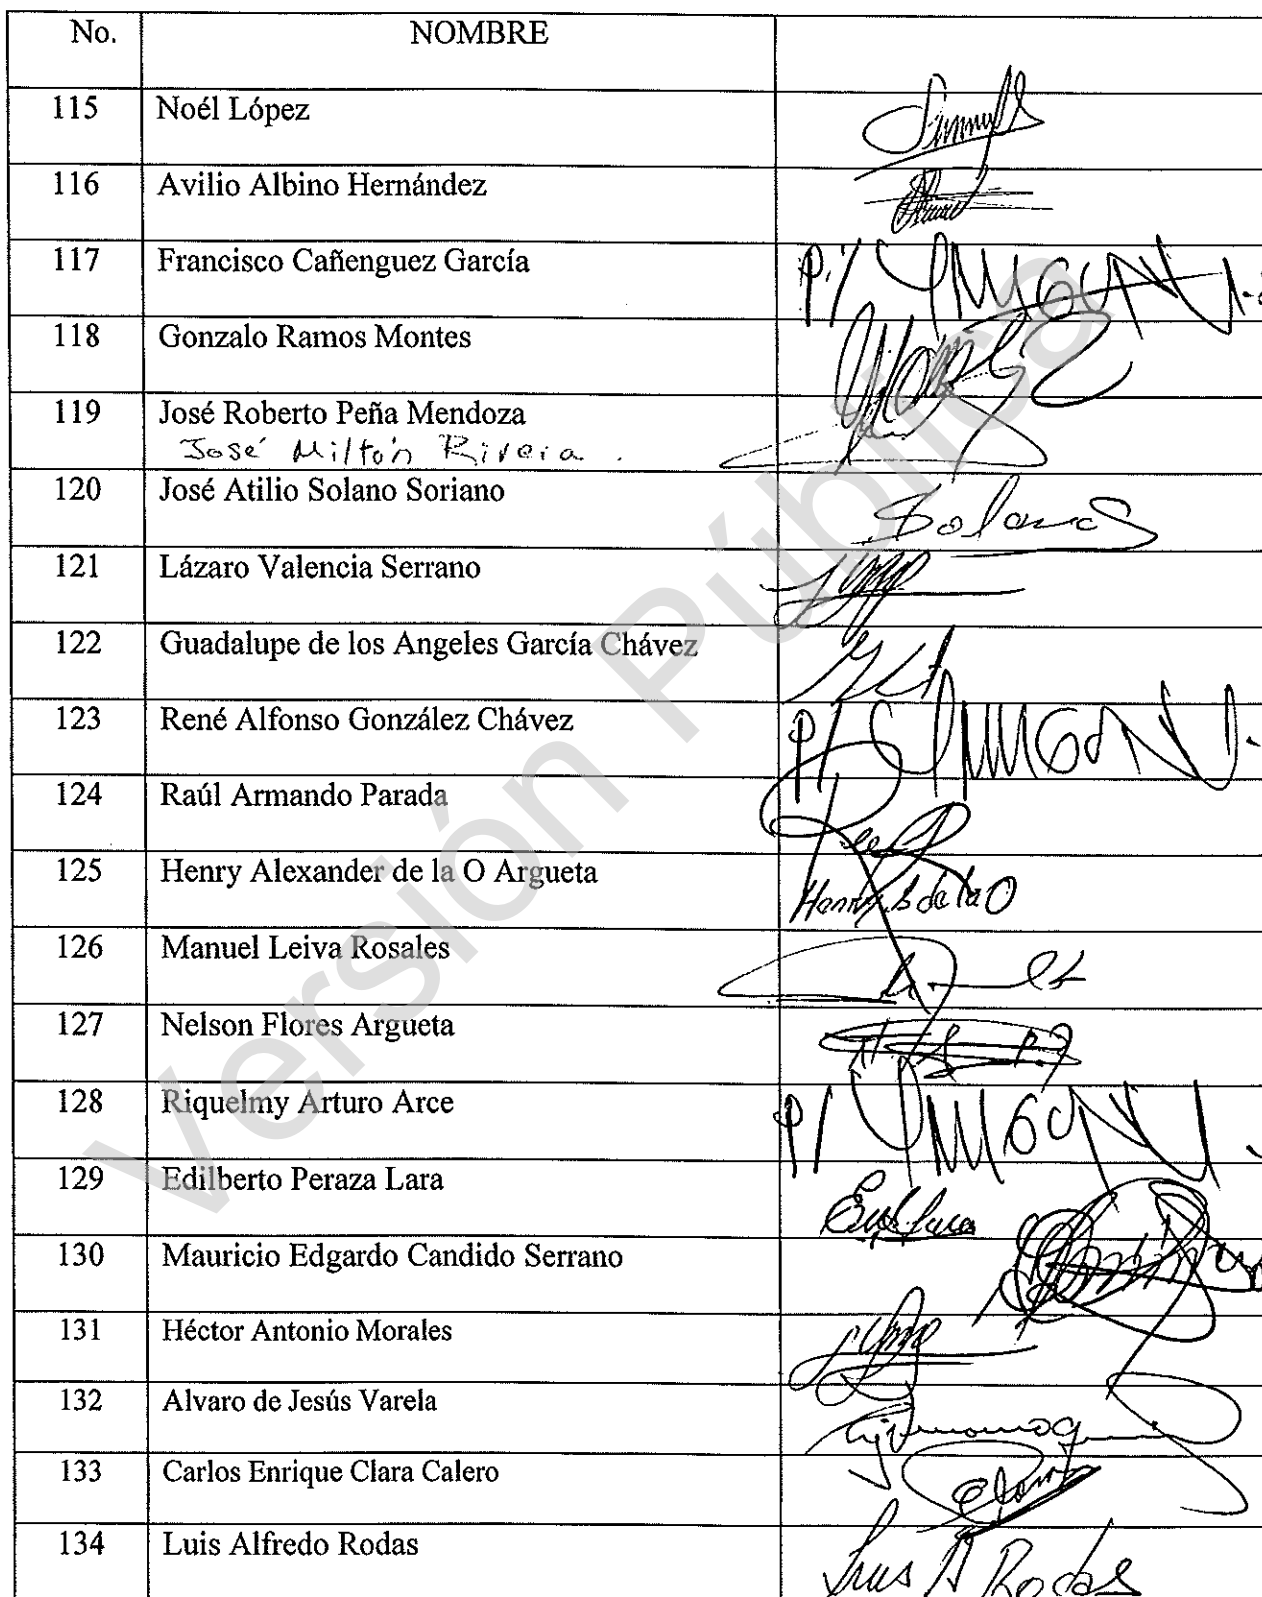 No. NOMBRE
115 Noél López
116 Avilio Albino Hernández
117 Francisco Cañenguez García
P./
118 Gonzalo Ramos Montes
119 José Roberto Peña Mendoza
José Milton Rivera .
120 José Atilio Solano Soriano
Solano S
121 Lázaro Valencia Serrano
122 Guadalupe de los Angeles García Chávez
123 René Alfonso González Chávez
P/
124 Raúl Armando Parada
125 Henry Alexander de la O Argueta
Henry de la O
126 Manuel Leiva Rosales
127 Nelson Flores Argueta
128 Riquelmy Arturo Arce
P/
129 Edilberto Peraza Lara
130 Mauricio Edgardo Candido Serrano
131 Héctor Antonio Morales
132 Alvaro de Jesús Varela
133 Carlos Enrique Clara Calero
134 Luis Alfredo Rodas
Luis A Rodas
Versión Pública